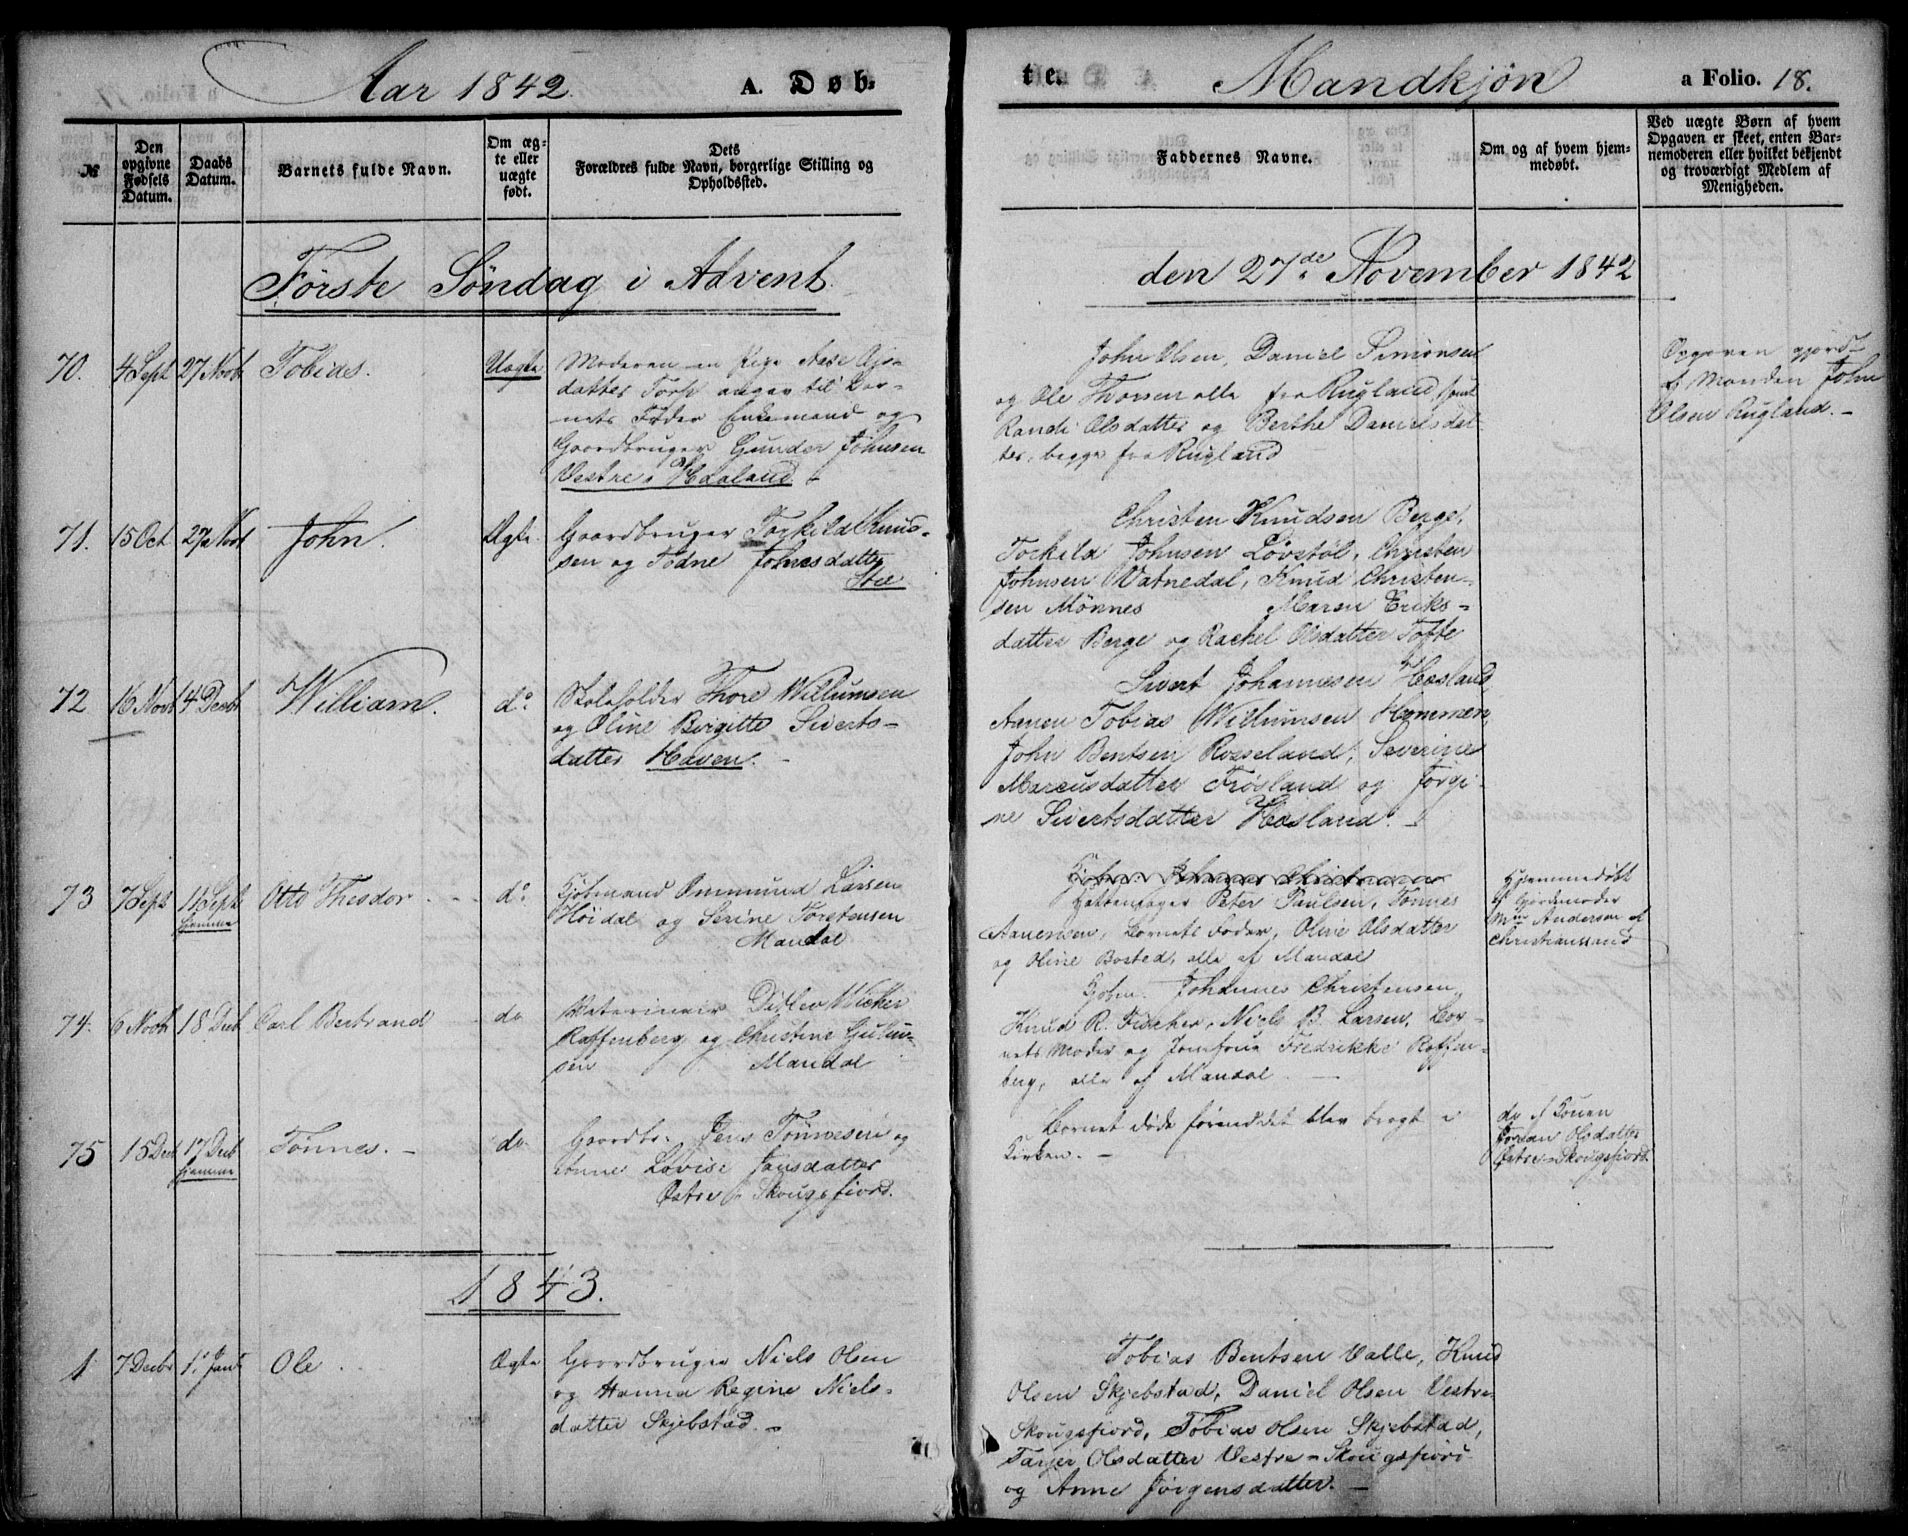 Aar 1842. A. Døb-
te. Mandkjøn a Folio. 18.
№
Den opgivne Fødsels Datum.
Daabs Datum.
Barnets fulde Navn.
Om ægte eller uægte født.
Dets Forældres fulde Navn, borgerlige Stilling og Opholdssted.
Faddernes Navne.
Om og af hvem hjemmedøbt.
Ved uægte Børn af hvem Opgaven er skeet, enten Barnemoderen eller hvilket bekjendt og troværdigt Medlem af Menigheden.
Første Søndag i Advent
den 27de November 1842
70. 4 Sept 27 Novb Tobias. Uægte
Moderen en Pige Aase
datter angav til Bar-
nets Fader Enkemand og
Gaardbruger Gunder Johnsen
Vestre Haaland
John Olsen, Daniel Simonsen
og Ole Thorsen alle fra Rugland, samt
Randi Olsdatter og Berthe Danielsdat-
ter, begge fra Rugland
Opgaven gjord
af Manden John
Olsen Rugland. -
71. 15 Oct 27 Novb John. Ægte.
Gaardbruger Torkild Knud-
sen og Todne Johnsdatter
Christen Knudsen Berge,
Torkild Johnsen Løvstøl, Christen
Johnsen Vatnedal, Knud Christen-
sen Mønnes Maren Eriks-
datter Berge og Rachel Olsdatter Tofte
72 16 Novb 4 Decbr William. do
Skoleholder Thore Willumsen
og Oline Birgitte Siverts-
datter Haven. -
Sivert Johannesen Hæsland,
Aanen Tobias Willumsen Hemmen,
John Bentsen Rosseland, Severine
Marcusdatter Frøsland og Jørgi-
ne Sivertsdatter Hæsland. -
73 7 Sept 11 Sept hjemme Otto Theodor do
Kjøbmand Ommund Larsen
Høidal og Serine Torstensen
Mandal
Kjøbm. Johannes Christensen
Hattemager Peter Paulsen, Tønnes
Aanensen, Barnets Fader, Oline Olsdatter
og Oline Bosted, alle af Mandal
Hjemmedøbt
af Gjordemoder
Andersen af
Christianssand
74. 6 Novb 18 Decb Carl Bertrand do
Veterinair Ditlev
Raffenberg og Christine
sen Mandal
Kjøbm. Johannes Christensen,
Knud R. Fischer, Niels B. Larsen, Bar-
nets Moder og Jomfrue Fredrikke Raffen-
berg, alle af Mandal. -
75 15 Decb 17 Decb hjemme Tønnes. - do
Gaardbr. Jens Tønnesen og
Anne Lovise Jansdatter
Østre Skougsfiord.
Barnet døde førend det blev bragt i
Kirken. -
do af Konen
Olsdatter
Østre-Skougsfiord
1843.
1 7 Decbr 1 Jan Ole Ægte
Gaardbruger Niels Olsen
og Hanna Regine Niels-
datter Skjebstad. -
Tobias Bentsen Valle, Knud
Olsen Skjebstad, Daniel Olsen Vestre
Skougsfiord, Tobias Olsen Skjebstad,
Tarjer Olsdatter Vestre-Skougsfiord
og Anne Jørgensdatter. -